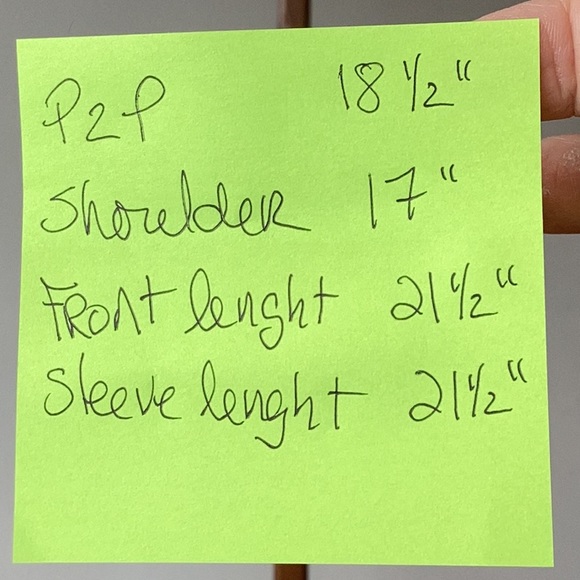 P2P 18 1/2"
Shoulder 17"
Front lenght 21 1/2"
Sleeve lenght 21 1/2"